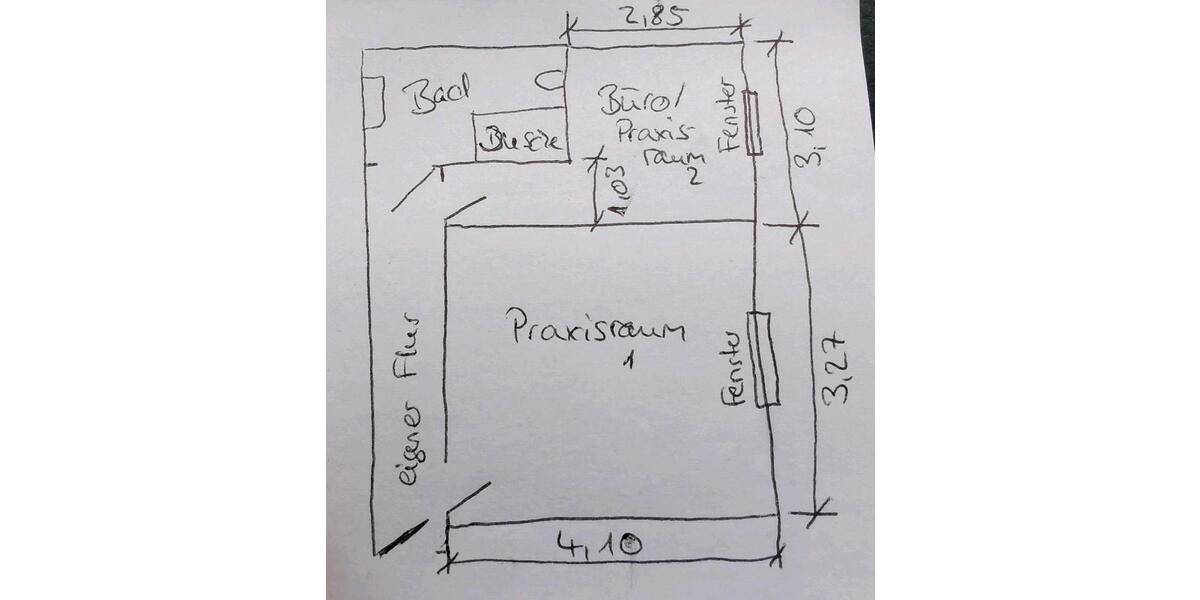 2,85
Bad
Büro/
Praxis
raum
2
Fenster
3,10
1,03
Praxisraum
1
Fenster
3,27
eigener Flur
4,10